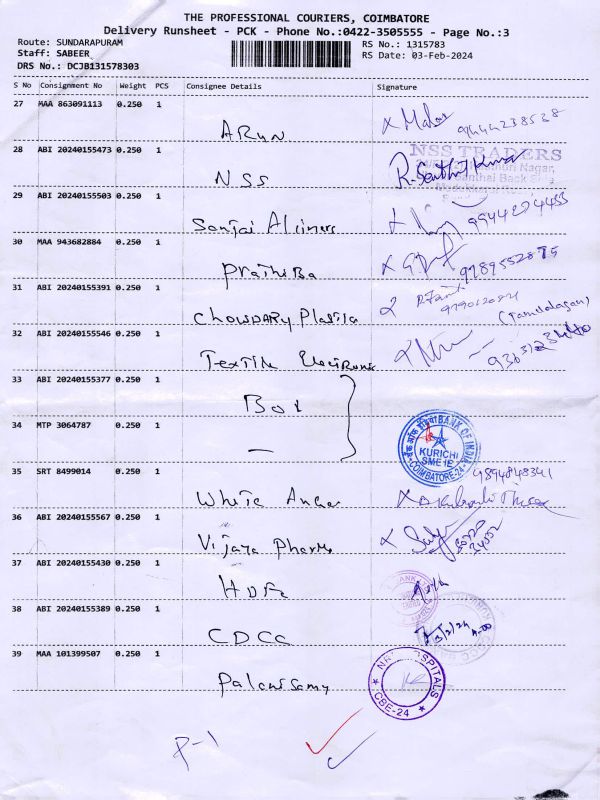 THE PROFESSIONAL COURIERS, COIMBATORE
Delivery Runsheet - PCK - Phone No.:0422-3505555 - Page No.:3
Route: SUNDARAPURAM
RS No.: 1315783
Staff: SABEER
RS Date: 03-Feb-2024
DRS No.: DCJB131578303
S No Consignment No Weight PCS Consignee Details Signature
27 MAA 863091113 0.250 1
Arun
28 ABI 20240155473 0.250 1
NSS TRADERS
NSS
29 ABI 20240155503 0.250 1
9944274453
30 MAA 943682884 0.250 1
Prathiba
9789552875
31 ABI 20240155391 0.250 1
Chowdary
32 ABI 20240155546 0.250 1
Textile
33 ABI 20240155377 0.250 1
BOI
34 MTP 3064787 0.250 1
BANK OF INDIA
KURICHI
SME IE
COIMBATORE-24
35 SRT 8499014 0.250 1
9894848341
White
36 ABI 20240155567 0.250 1
Vijaya Pharma
37 ABI 20240155430 0.250 1
HDFC
38 ABI 20240155389 0.250 1
CDCC
39 MAA 101399507 0.250 1
HOSPITALS
CBE-24
Palanisamy
P-1